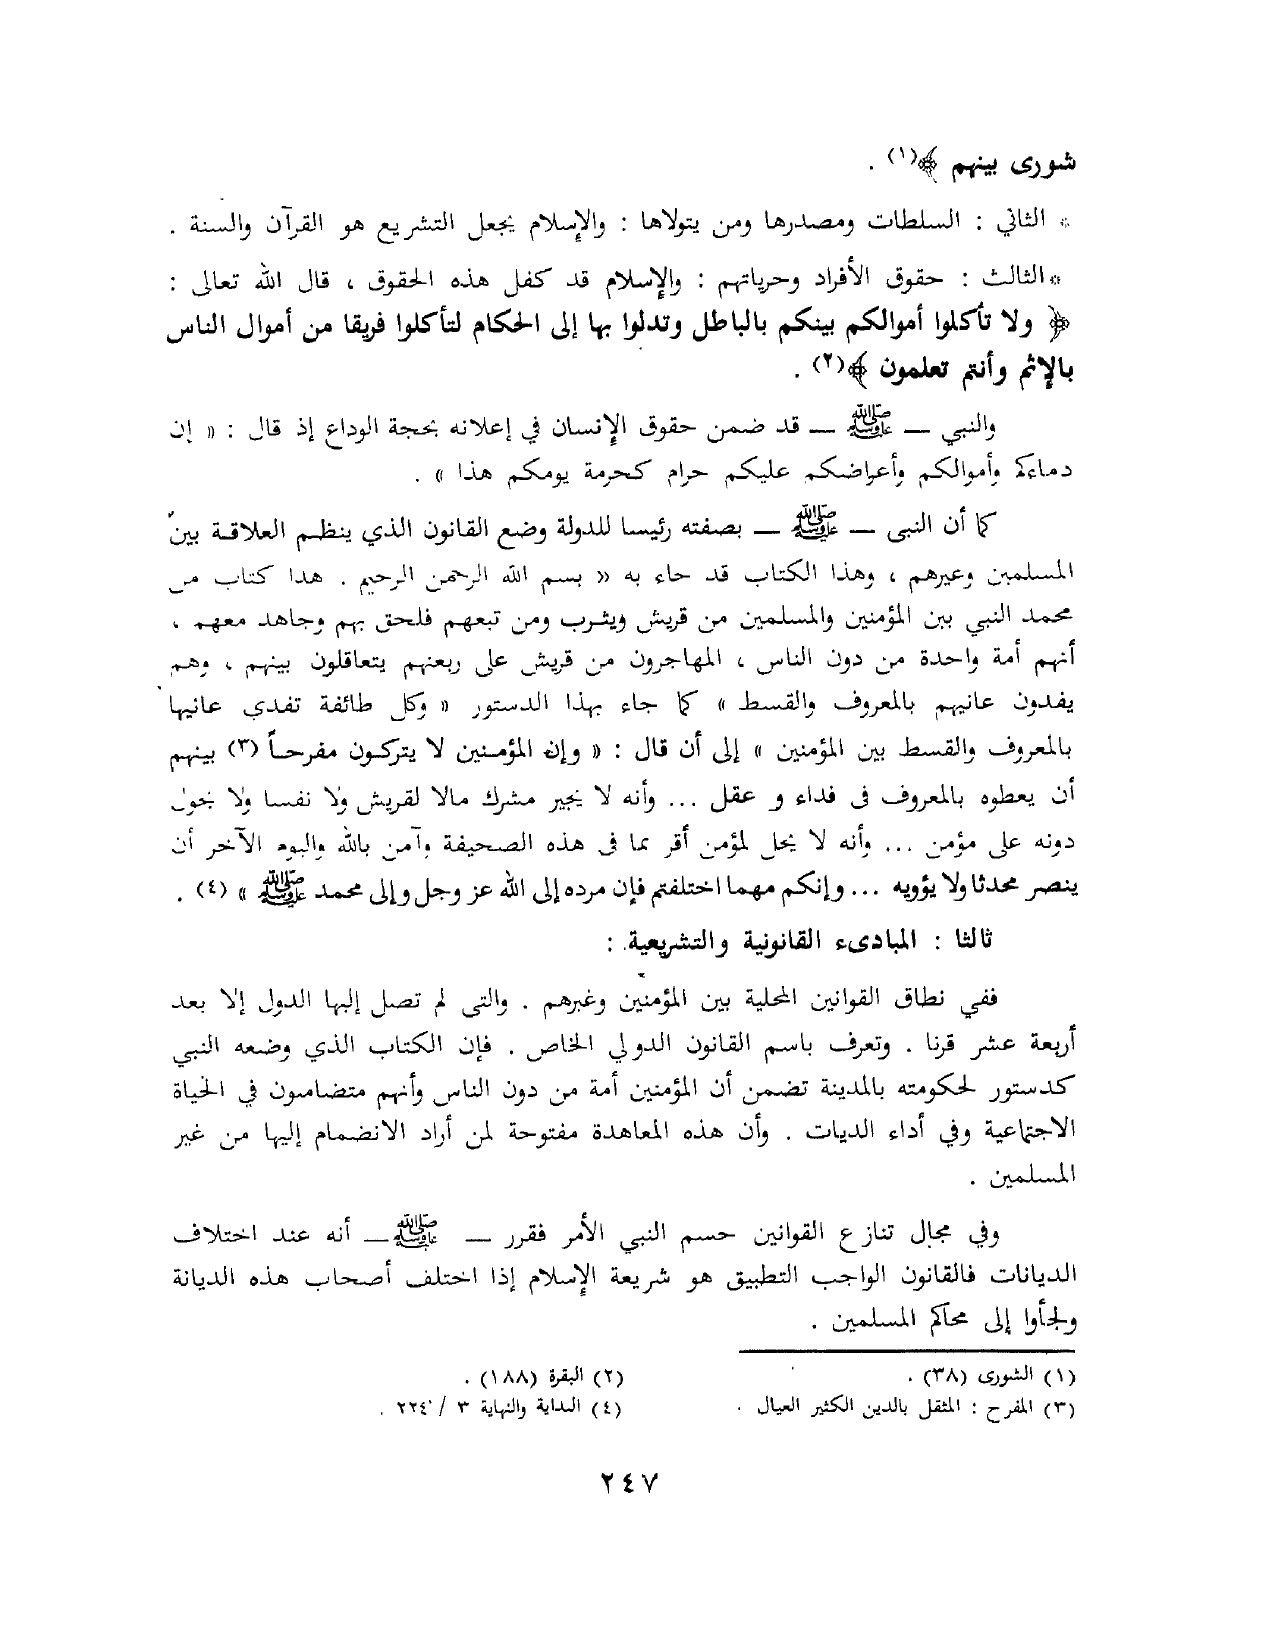 شورى بينهم ﴾(١) .
* الثاني : السلطات ومصدرها ومن يتولاها : والإسلام يجعل التشريع هو القرآن والسنة .
* الثالث : حقوق الأفراد وحرياتهم : والإسلام قد كفل هذه الحقوق ، قال الله تعالى :
﴿ ولا تأكلوا أموالكم بينكم بالباطل وتدلوا بها إلى الحكام لتأكلوا فريقا من أموال الناس
بالإثم وأنتم تعلمون ﴾(٢) .
والنبي — ﷺ — قد ضمن حقوق الإنسان في إعلانه بحجة الوداع إذ قال : « إن
دماءكم وأموالكم وأعراضكم عليكم حرام كحرمة يومكم هذا » .
كما أن النبى — ﷺ — بصفته رئيسا للدولة وضع القانون الذي ينظم العلاقة بين
المسلمين وغيرهم ، وهذا الكتاب قد جاء به « بسم الله الرحمن الرحيم . هذا كتاب من
محمد النبي بين المؤمنين والمسلمين من قريش ويثرب ومن تبعهم فلحق بهم وجاهد معهم ،
أنهم أمة واحدة من دون الناس ، المهاجرون من قريش على ربعتهم يتعاقلون بينهم ، وهم
يفدون عانيهم بالمعروف والقسط » كما جاء بهذا الدستور « وكل طائفة تفدى عانيها
بالمعروف والقسط بين المؤمنين » إلى أن قال : « وإن المؤمنين لا يتركون مفرحاً (٣) بينهم
أن يعطوه بالمعروف فى فداء و عقل ... وأنه لا يجير مشرك مالا لقريش ولا نفسا ولا يحول
دونه على مؤمن ... وأنه لا يحل لمؤمن أقر بما فى هذه الصحيفة وآمن بالله واليوم الآخر أن
ينصر محدثا ولا يؤويه ... وإنكم مهما اختلفتم فإن مرده إلى الله عز وجل وإلى محمد ﷺ » (٤) .
ثالثا : المبادىء القانونية والتشريعية :
ففي نطاق القوانين المحلية بين المؤمنين وغيرهم . والتى لم تصل إليها الدول إلا بعد
أربعة عشر قرنا . وتعرف باسم القانون الدولي الخاص . فإن الكتاب الذي وضعه النبي
كدستور لحكومته بالمدينة تضمن أن المؤمنين أمة من دون الناس وأنهم متضامنون في الحياة
الاجتماعية وفي أداء الديات . وأن هذه المعاهدة مفتوحة لمن أراد الانضمام إليها من غير
المسلمين .
وفي مجال تنازع القوانين حسم النبي الأمر فقرر — ﷺ — أنه عند اختلاف
الديانات فالقانون الواجب التطبيق هو شريعة الإسلام إذا اختلف أصحاب هذه الديانة
ولجأوا إلى محاكم المسلمين .
(١) الشورى (٣٨) .
(٢) البقرة (١٨٨) .
(٣) المفرح : المثقل بالدين الكثير العيال .
(٤) البداية والنهاية ٣ / ٢٢٤ .
٢٤٧